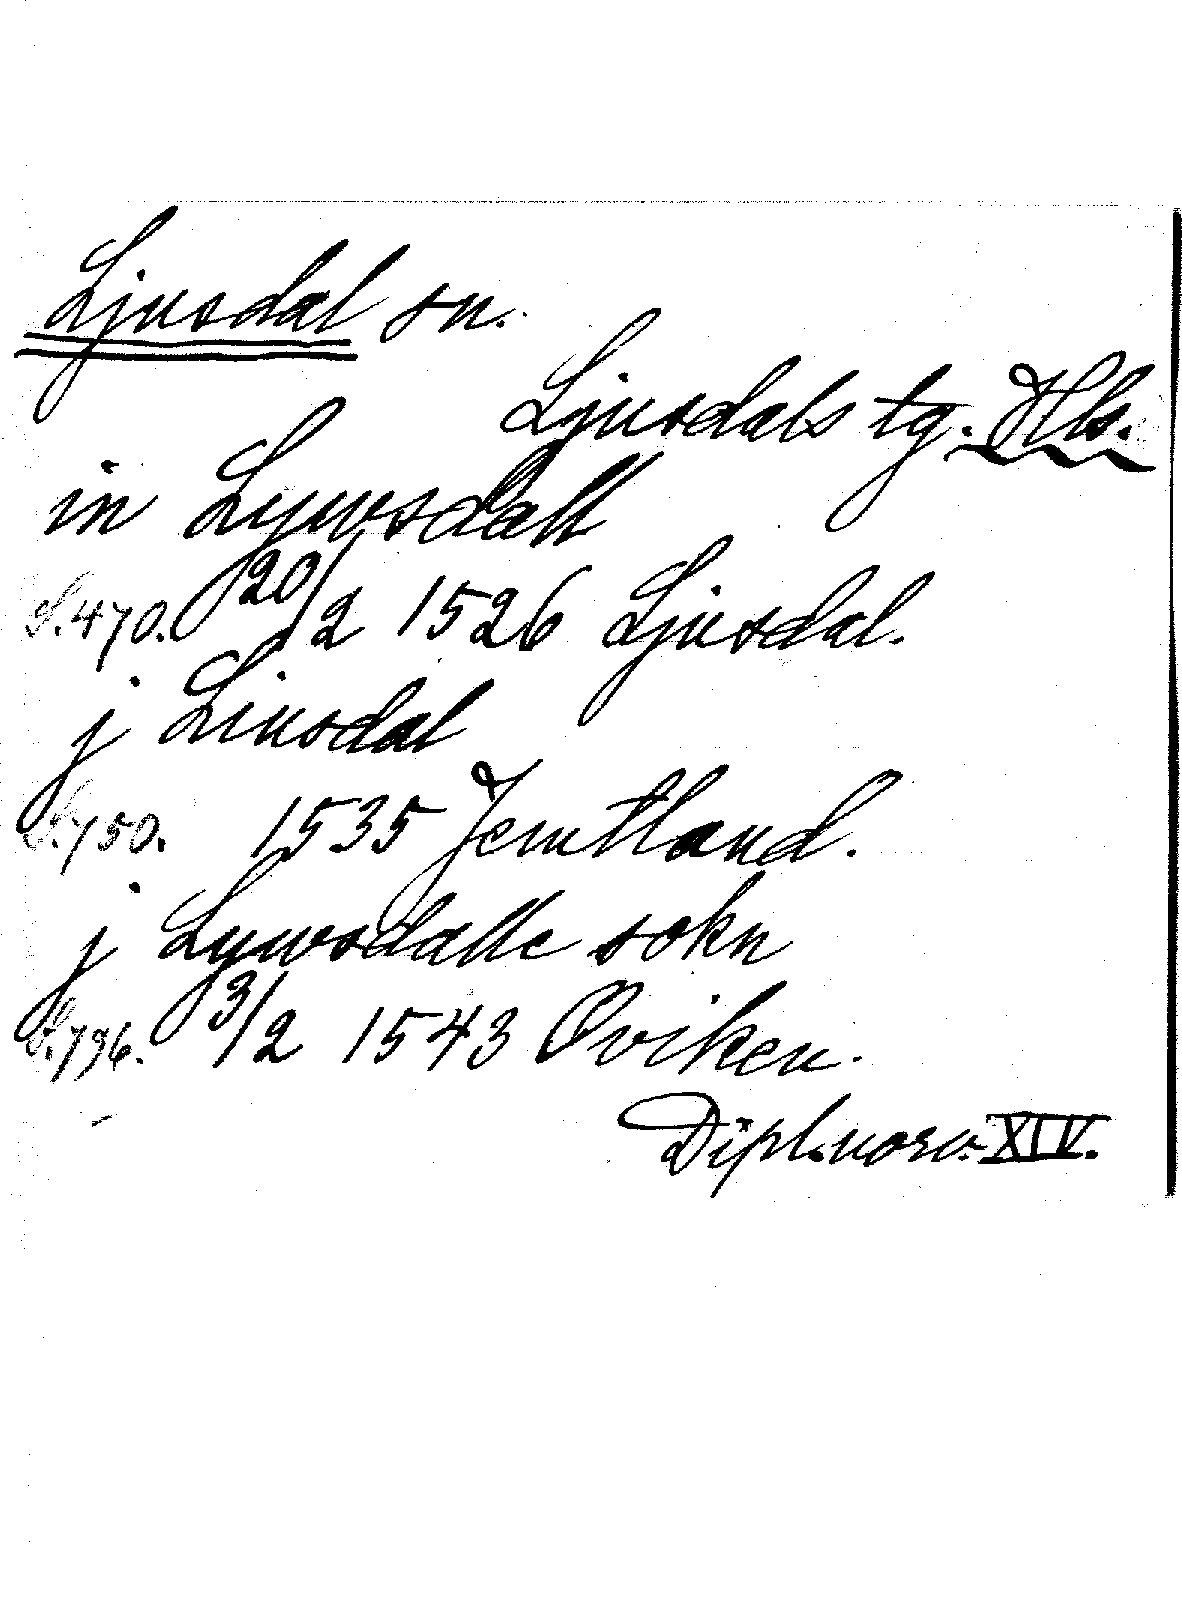 Ljusdal sn.
Ljusdals tg. Hls.
in Lywsdall
S.470. 20/2 1526 Ljusdal.
j Liusdal
S.750. 1535 Jemtland.
j Lywsdalle sokn
S.796. 3/2 1543 Oviken.
Dipl. norv. XIV.